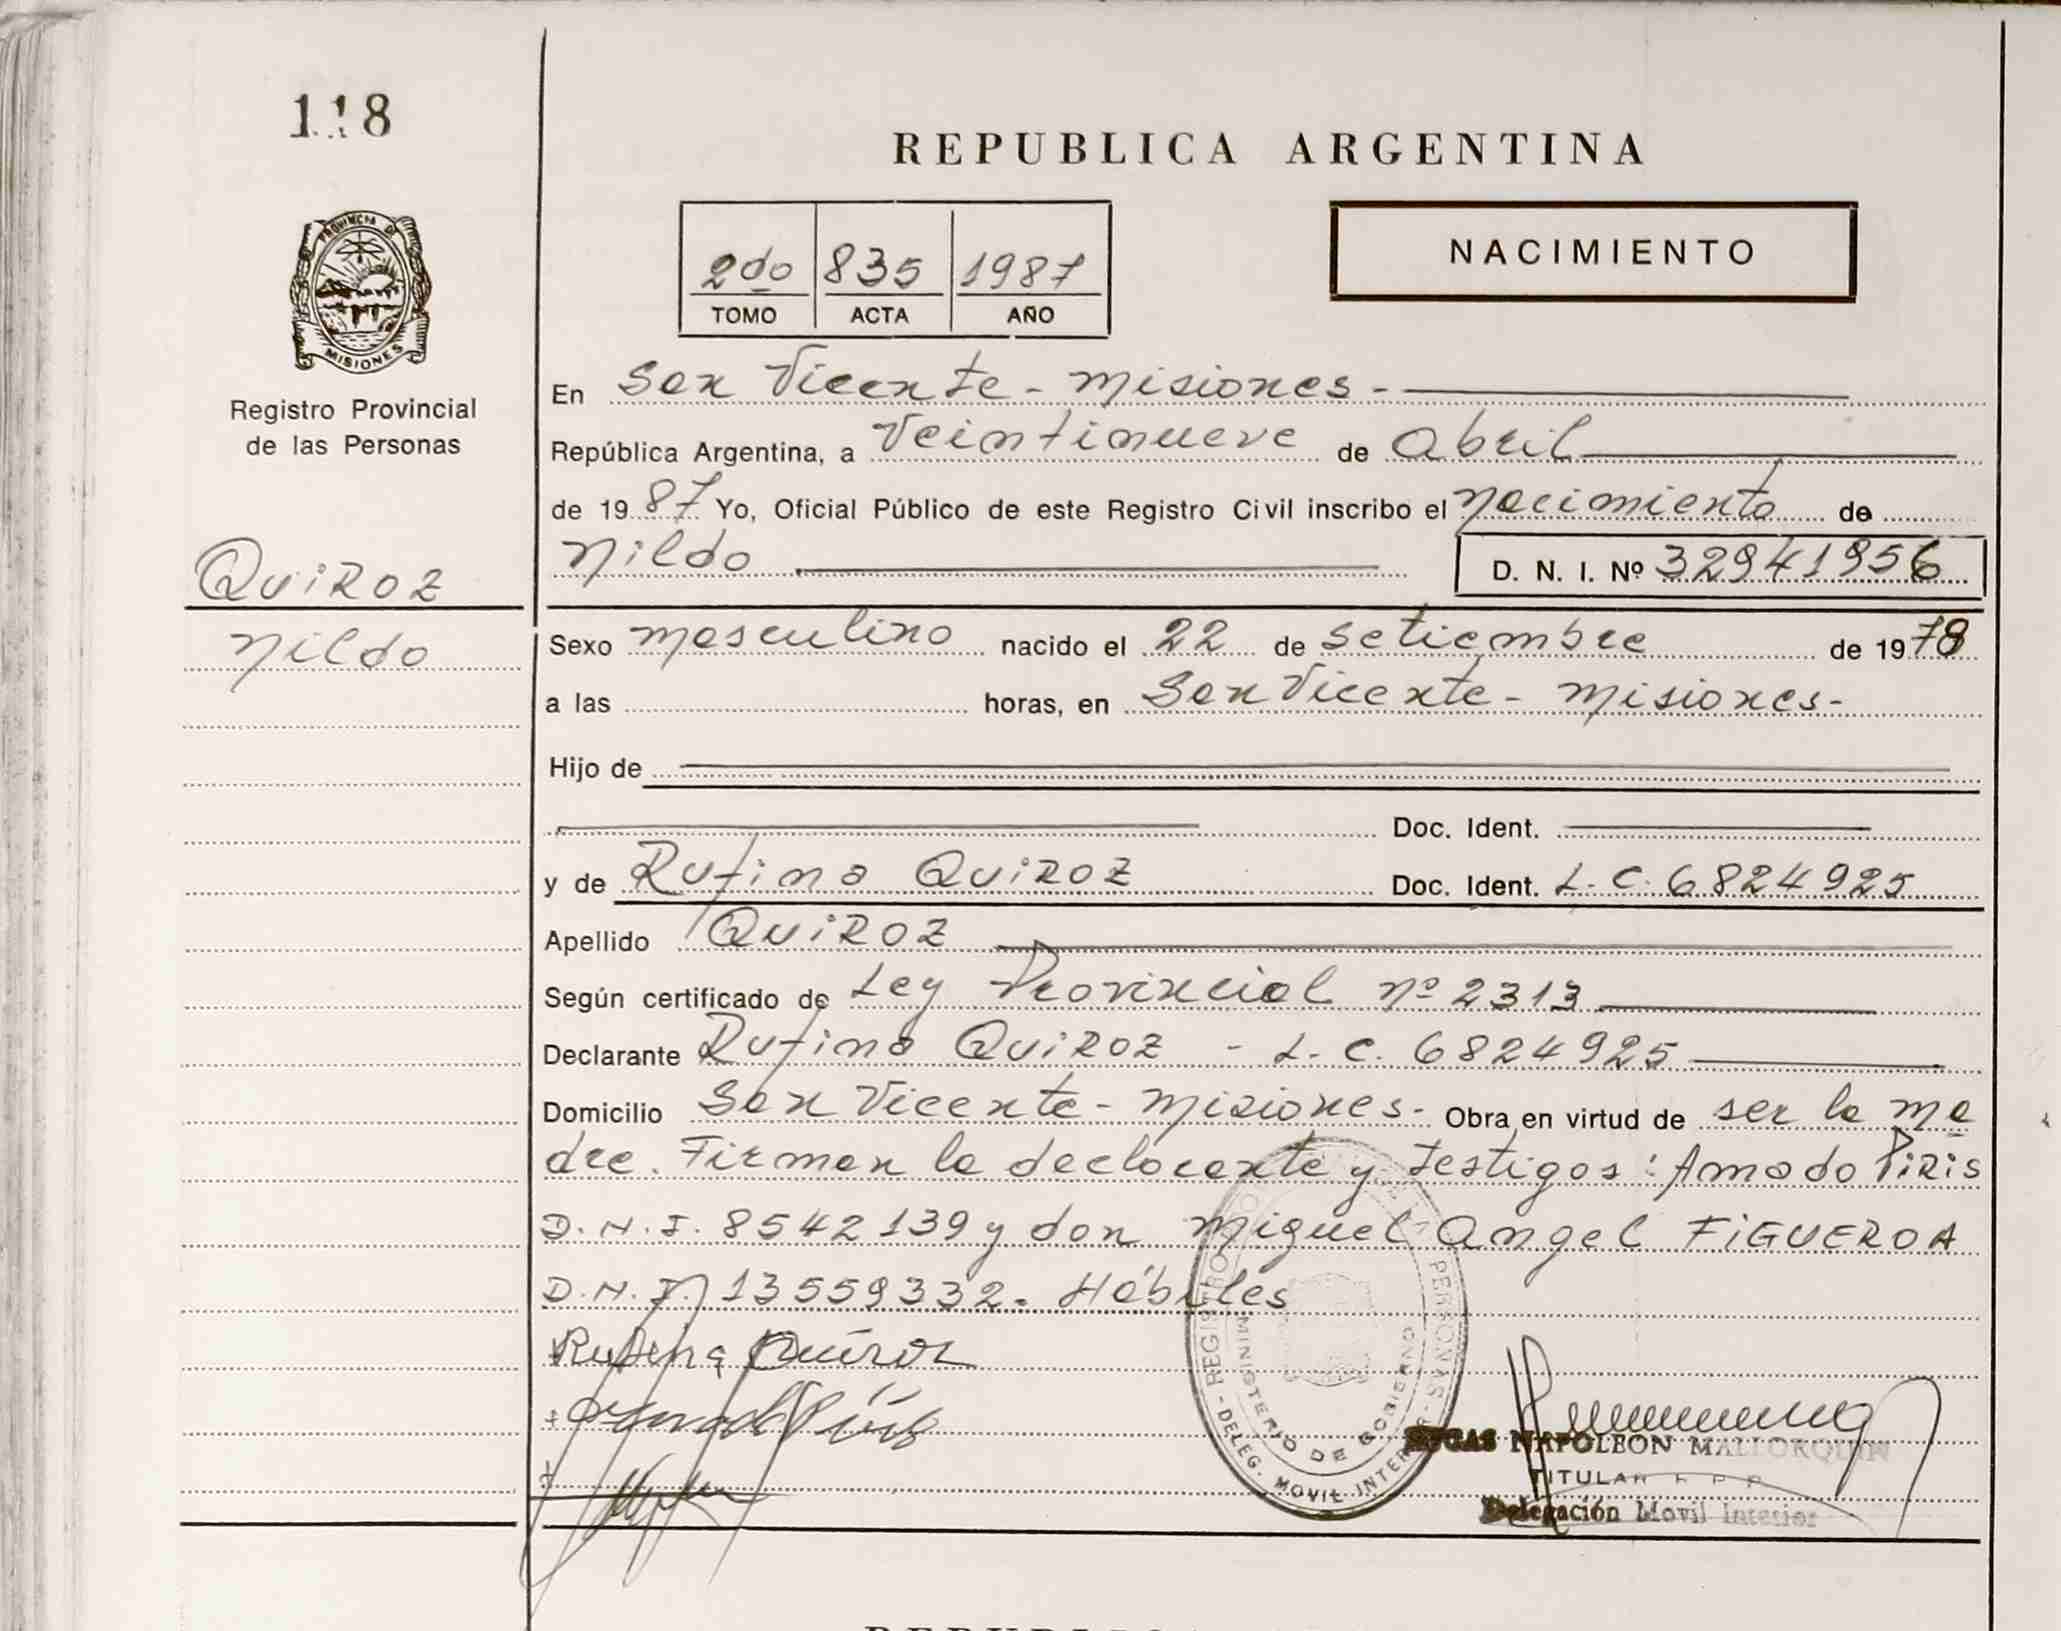 118
REPUBLICA ARGENTINA
2do 835 1987
TOMO ACTA AÑO
NACIMIENTO
PROVINCIA DE
MISIONES
Registro Provincial
de las Personas
En San Vicente - Misiones -
República Argentina, a Veintinueve de Abril
de 1987 Yo, Oficial Público de este Registro Civil inscribo el Nacimiento de
QUIROZ
Nildo D. N. I. Nº 32941956
Nildo
Sexo masculino nacido el 22 de Setiembre de 1978
a las horas, en San Vicente - Misiones -
Hijo de
Doc. Ident.
y de Rufina QUIROZ Doc. Ident. L. C. 6824925
Apellido QUIROZ
Según certificado de Ley Provincial nº 2313
Declarante Rufina QUIROZ - L. C. 6824925
Domicilio San Vicente - Misiones - Obra en virtud de ser la ma
dre. Firman la declarante y testigos: Amado PIRIS
D. N. I. 8542139 y don Miguel Angel FIGUEROA
D. N. I. 13559332. Hábiles
Rufina Quiroz
REGISTRO PERSONAS
MINISTERIO DE GOBIERNO
- DELEG. MOVIL INTERIOR -
NAPOLEON MALLORQUIN
TITULAR R P P
Delegación Movil Interior